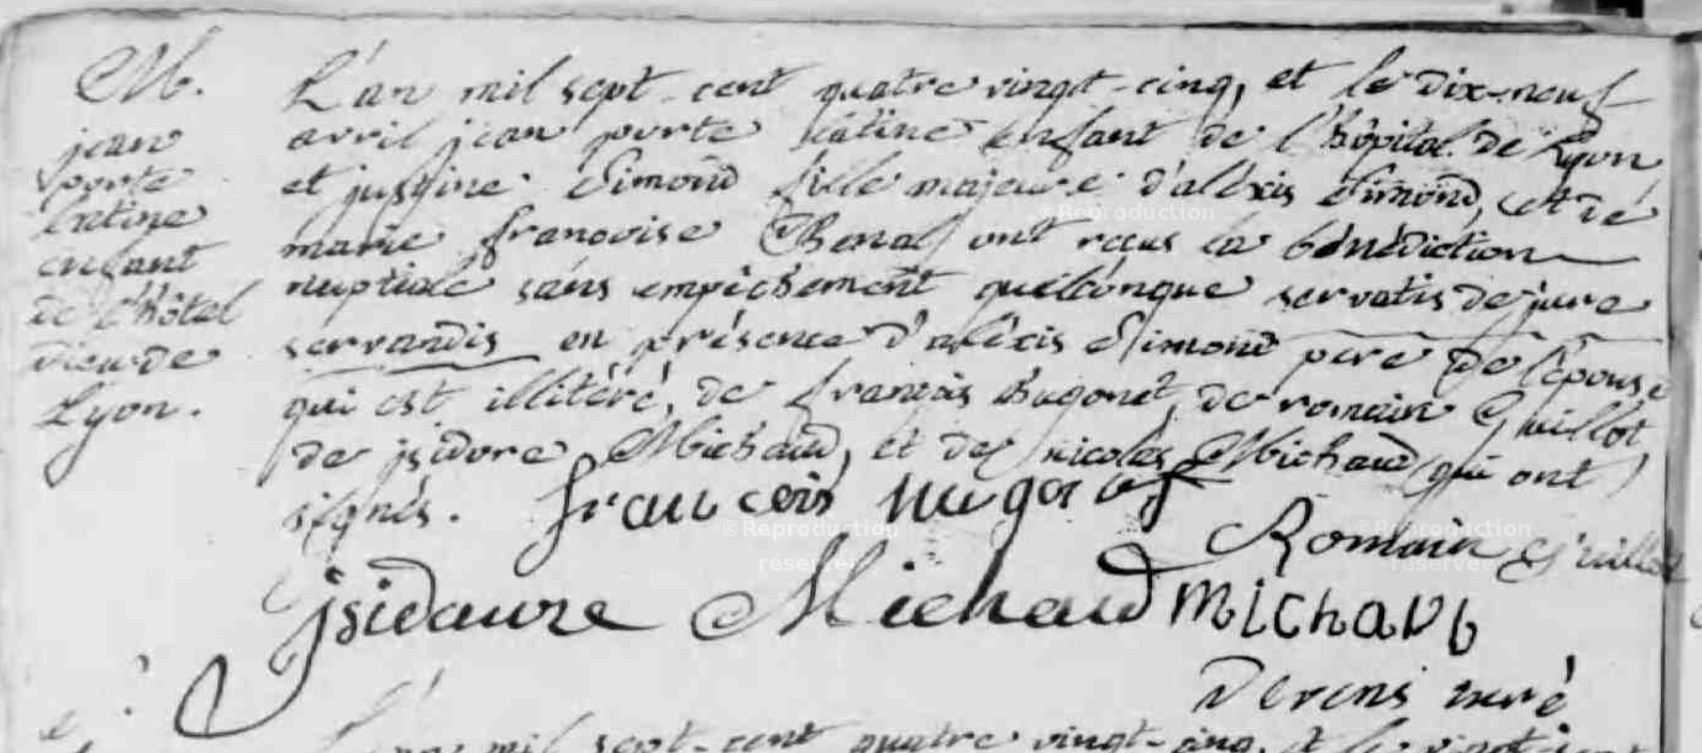 M.
jean
porte
latine
enfant
de l'hôtel
dieu de
Lyon.
L'an mil sept-cent quatre vingt-cinq, et le dix-neuf
avril jean porte latine enfant de l'hôpital de Lyon
et justine Simond fille majeure d'aléxis Simond, et de
marie françoise Chenal ont reçus la bénédiction
nuptiale sans empêchement quélconque servatis de jure
servandis en présence d'aléxis Simond pere de l'épouse
qui est illitéré, de françois Bugonet, de romain Guillot
de jsidore Michaud, et de nicolas Michaud qui ont
signés. francois
Romain Guillot
jsidaure Michaud Michaud
curé
mil sept-cent quatre vingt-cinq, et le vingt